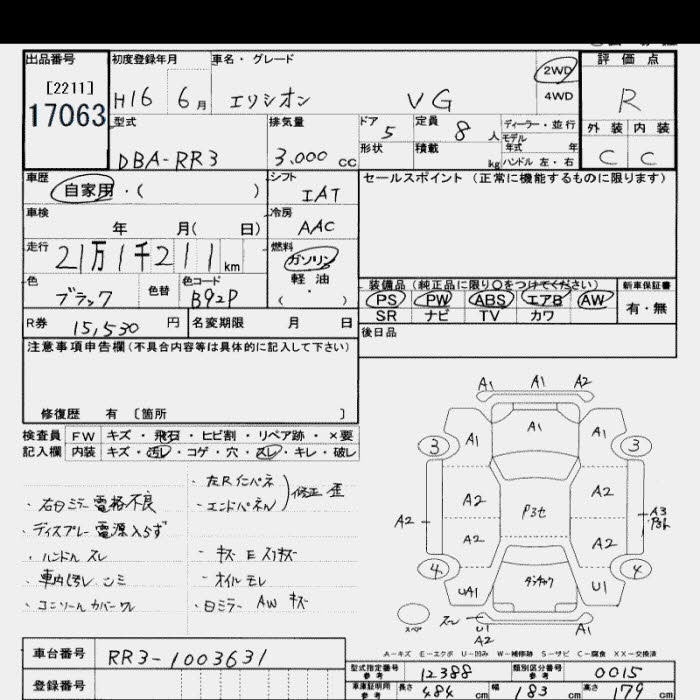 出品番号
[2211]
17063
初度登録年月
H16 6月
車名・グレード
エリシオン VG
2WD
4WD
評価点
R
外装 内装
C C
型式
DBA-RR3
排気量
3.000 cc
ドア
5
定員
8 人
形状
積載
kg
ディーラー・並行
モデル
年式 年
ハンドル 左・右
車歴
自家用・( )
シフト
IAT
車検
年 月( 日)
冷房
AAC
走行
21万1千211 km
燃料
ガソリン
軽油
( )
色
ブラック
色替
色コード
B92P
R券 15,530 円
名変期限 月 日
セールスポイント(正常に機能するものに限ります)
装備品(純正品に限り○をつけてください)
PS PW ABS エアB AW
SR ナビ TV カワ
新車保証書
有・無
後日品
注意事項申告欄(不具合内容等は具体的に記入して下さい)
修復歴 有 [箇所 ]
検査員
記入欄
FW キズ・飛石・ヒビ割・リペア跡・×要
内装 キズ・汚レ・コゲ・穴・スレ・キレ・破レ
・右日ミラー電格不良
・ディスプレー電源入らず
・ハンドルスレ
・車内汚レ シミ
・コンソールカバーワレ
・左Rインパネ
・エンドパネル
修正 歪
・キズ E スリキズ
・オイルモレ
・日ミラー AW キズ
A1 A1 A2
3 A1 A1 A1 3
A2 A2 A2 A2 A2 A3
P3セ
4 UA1 U1 4
スペア
U1
A2
A1
A-キズ E-エクボ U-凹み W-補修跡 S-サビ C-腐食 XX-交換済
車台番号 RR3-1003631
登録番号
型式指定番号
参考
12388
類別区分番号
参考
0015
車庫証明用
参考
長さ 484 cm 幅 183 cm 高さ 179 cm